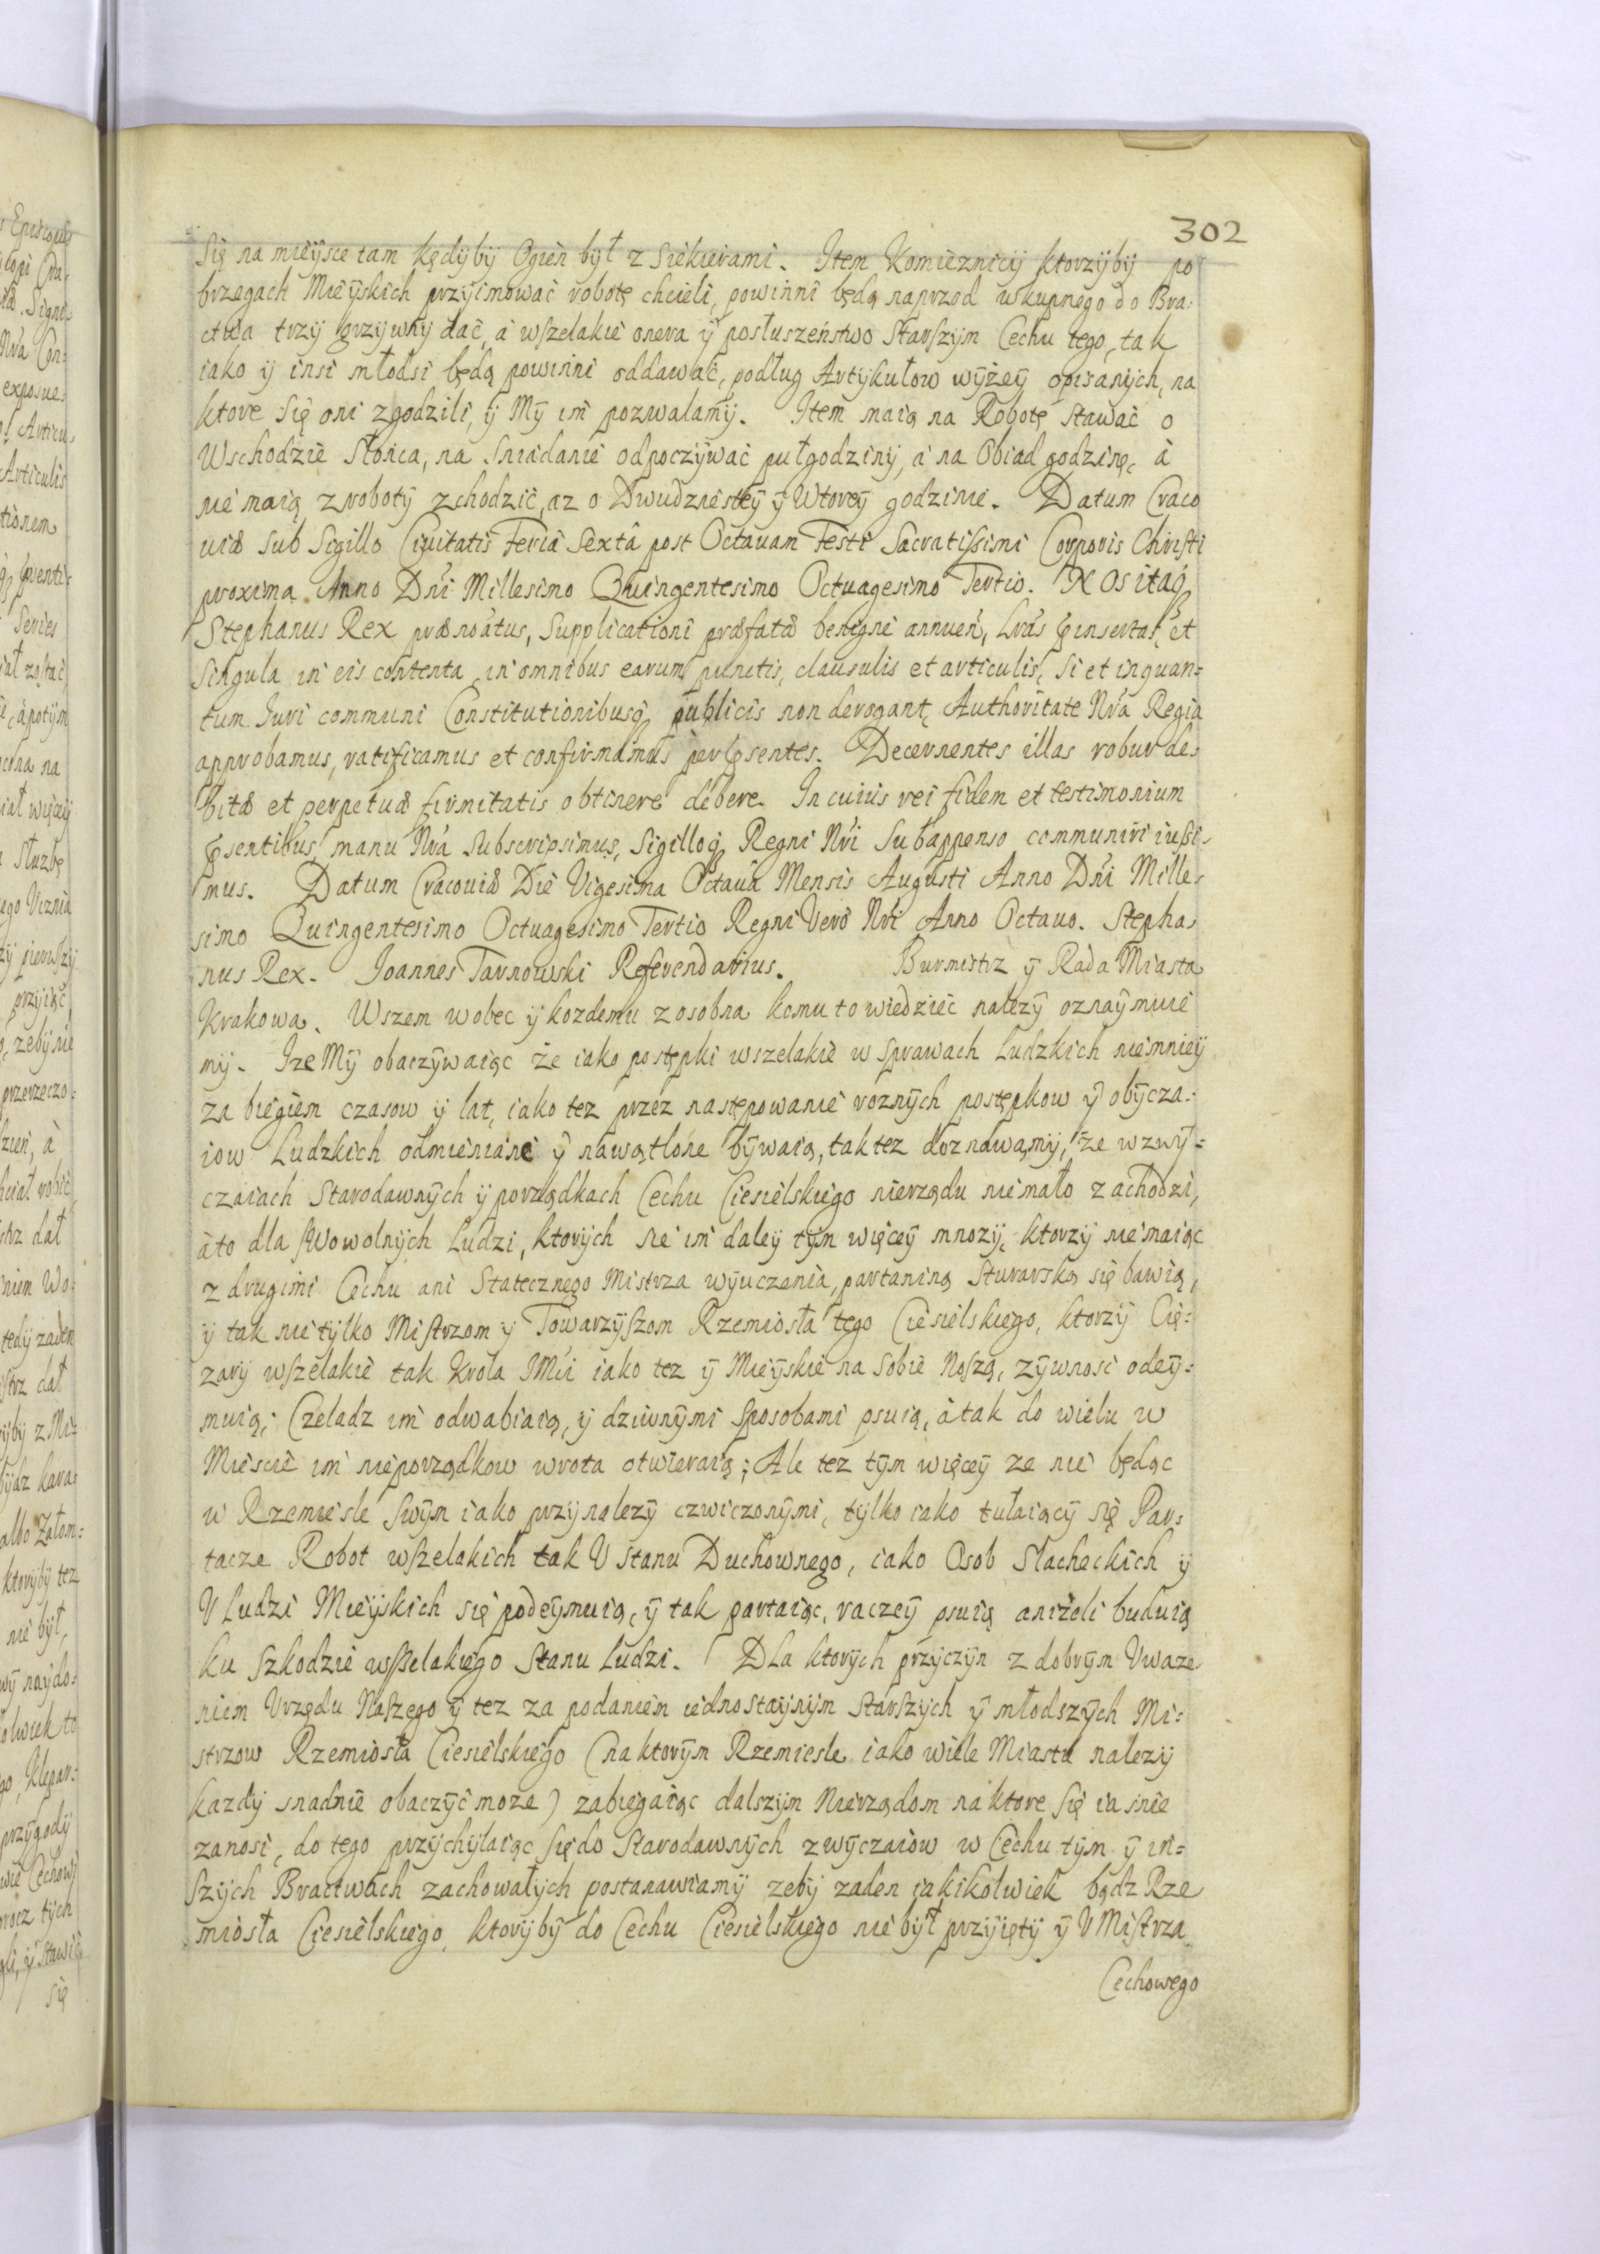 302
Się na mieysce tam kędyby Ogień był z Siekierami. Item Komieznicy ktorzyby po
brzegach Mieyskich przyimować robotę chcieli, powinni będą naprzod wkupnego do Bra-
ctwa trzy grzywny dać, a wszelakie onera y posłuszeństwo Starszym Cechu tego, tak
iako y insi młodsi będą powinni oddawać, podług Artykułow wyżey opisanych, na
ktore Się oni zgodzili, y My im pozwalamy. Item maią na Robotę stawać o
Wschodzie Słońca, na Sniadanie odpoczywać pułgodziny, a na Obiad godzinę, à
nie maią z roboty zchodzić, az o Dwudziestey y Wtorey godzinie. Datum Craco
uiæ sub Sigillo Ciuitatis Feria Sexta post Octauam Festi Sacratissimi Corporis Christi
proxima Anno Dni Millesimo Quingentesimo Octuagesimo Tertio. Nos itaq
Stephanus Rex prænoatus, Supplicationi præfatæ benigne annueń, Lras pinsertas, et
Singula in eis contenta in omnibus earum punctis, clausulis et articulis, si et inquan-
tum Juri communi Constitutionibusq publicis non derogant, Authoritate Nra Regia
approbamus, ratificamus et confirmamus per psentes. Decernentes illas robur de-
bitæ et perpetuæ firmitatis obtinere debere. In cuius rei fidem et testimonium
psentibus manu Nra Subscripsimus, Sigilloq Regni Nri Subappenso communiri iussi-
mus. Datum Cracouiæ Die Vigesima Octaua Mensis Augusti Anno Dni Mille-
simo Quingentesimo Octuagesimo Tertio Regni Vero Nri Anno Octauo. Stepha-
nus Rex. Joannes Tarnowski Referendarius. Burmistrz y Rada Miasta
Krakowa. Wszem wobec y kozdemu zosobna komu to wiedzieć należy oznaymuie
my. Ize My obaczywaiąc że iako postępki wszelakie w Sprawach Ludzkich niemniey
za biegiem czasow y lat, iako tez przez następowanie roznych postępkow y obycza-
iow Ludzkich odmieniane y nawątlone bywaią, tak tez doznawamy, że w zwy-
czaiach Starodawnych y porządkach Cechu Ciesielskiego nierządu niemało zachodzi,
àto dla Swowolnych Ludzi, ktorych sie im daley tym więcey mnozy, ktorzy niemaiąc
z drugimi Cechu ani Statecznego Mistrza wyuczenia, partaniną Sturarską się bawią,
y tak nietylko Mistrzom y Towarzyszom Rzemiosła tego Ciesielskiego, ktorzy Cię-
zary wszelakie tak Krola JMći iako tez y Mieyskie na sobie Noszą, zywnosc odey-
muią; Czeladz im odwabiaią, y dziwnymi Sposobami psuią, àtak do wielu w
Miescie im nieporządkow wrota otwieraią; Ale tez tym więcey ze nie będąc
w Rzemiesle Swym iako przynalezy czwiczonymi, tylko iako tułaiący się Par-
tacze Robot wszelakich tak V Stanu Duchownego, iako Osob Slacheckich y
V Ludzi Mieyskich się podeymuią, y tak partaiąc, raczey psuią aniżeli buduią
ku Szkodzie wszelakiego Stanu Ludzi. Dla ktorych przyczyn z dobrym Vwaze
niem Vrzędu Naszego y tez za podaniem iednostaynym Starszych y młodszych Mi-
strzow Rzemiosła Ciesielskiego (na ktorym Rzemiesle iako wiele Miastu nalezy
kazdy snadnie obaczyć moze) zabiegaiąc dalszym Nierządom na ktore Się iasnie
zanosi, do tego przychylaiąc Siędo Starodawnych zwyczaiow w Cechu tym y in-
szych Bractwach zachowałych postanawiamy zeby zaden iakikolwiek bądz Rze
miosła Ciesielskiego, ktoryby do Cechu Ciesielskiego nie był przyięty y V Mistrza
Cechowego